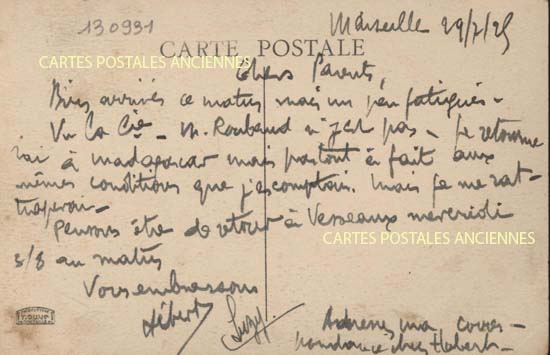 130931
Marseille 29/7/25
CARTE POSTALE
CARTES POSTALES ANCIENNES
Chers Parents,
Bien arrivés ce matin mais un peu fatigués -
Vu la Cie - M. Roubaud n'y est pas - Je retourne
rai à Madagascar mais pas tout à fait aux
mêmes conditions que j'escomptais. Mais je me rat-
traperai -
Pensons être de retour à Verseaux mercredi
CARTES POSTALES ANCIENNES
5/8 au matin
Vous embrassons
Hébert Suzy
Adressez ma corres-
pondance chez Hébert -